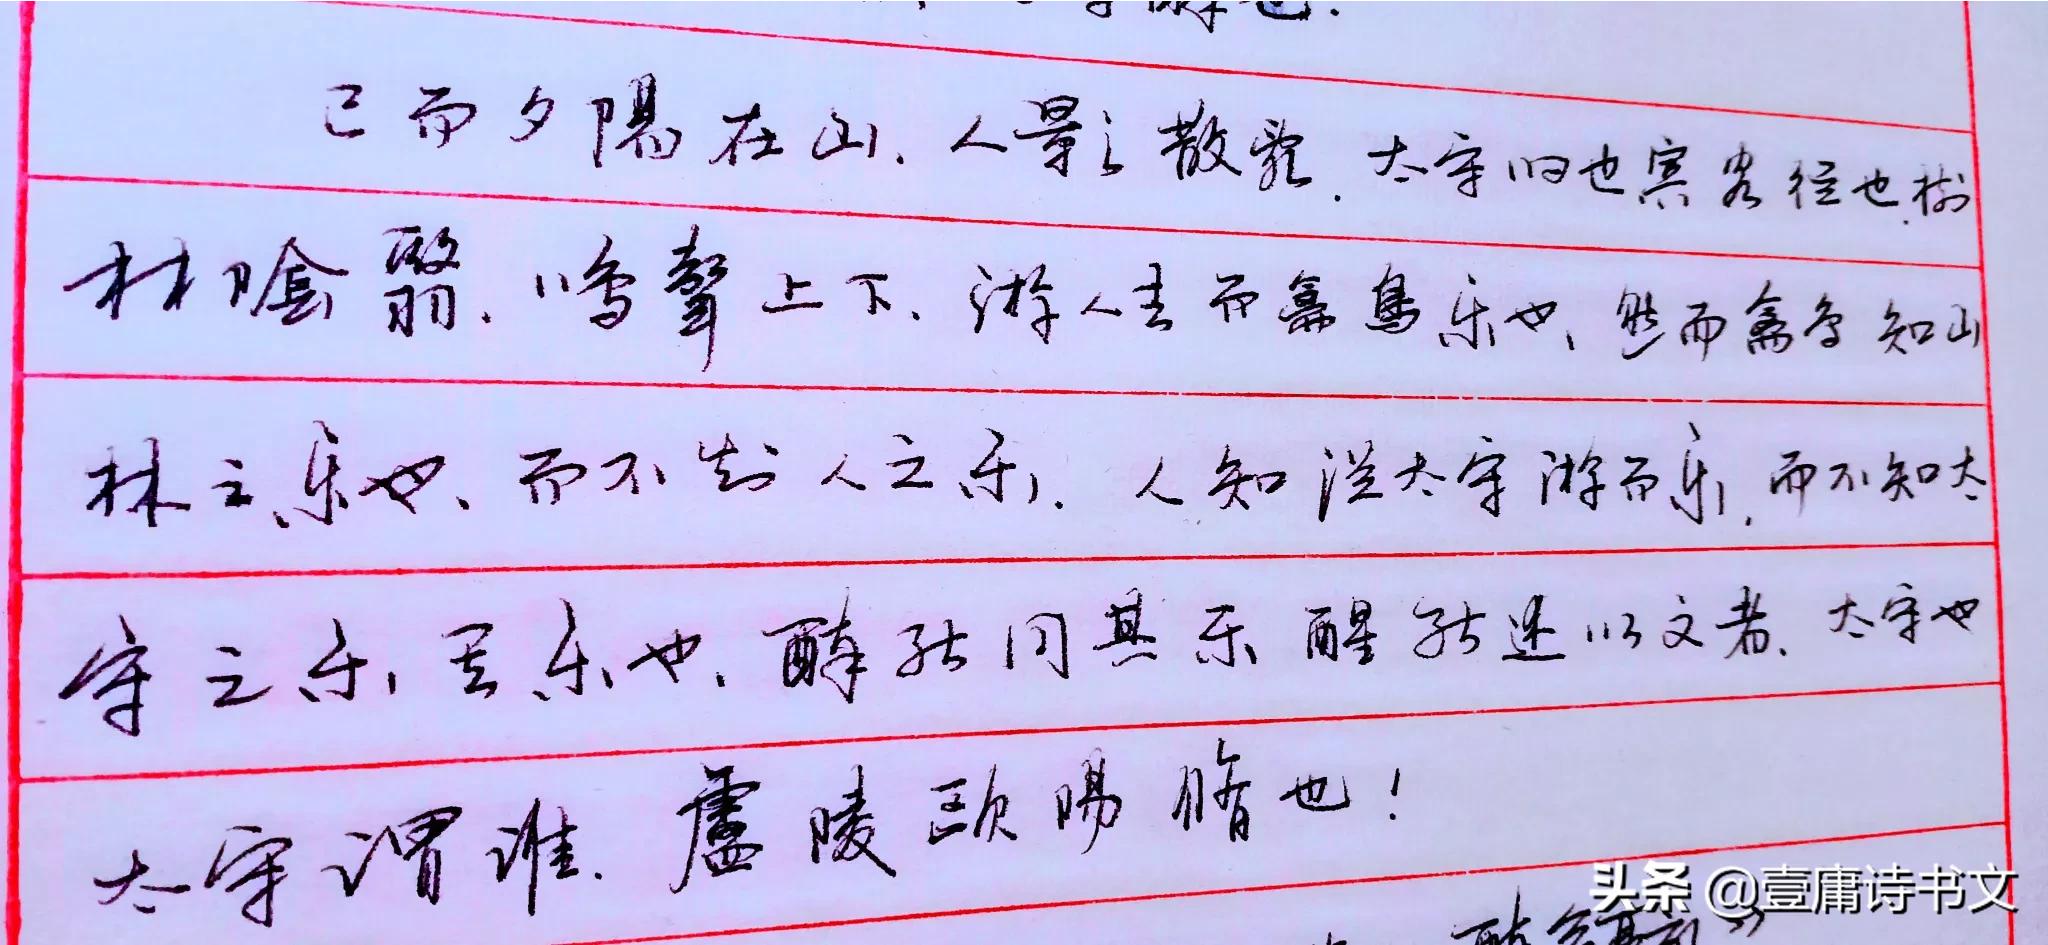 醉也.
已而夕陽在山.人影散亂.太守归也賓客從也.樹
林陰翳.鳴聲上下.游人去而禽鳥乐也、然而禽鸟知山
林之乐也、而不知人之乐.人知從太守游而乐,而不知太
守之乐,其乐也、醉能同其乐醒能述以文者、太守也
太守谓谁.廬陵歐陽脩也!
头条 @壹庸诗书文